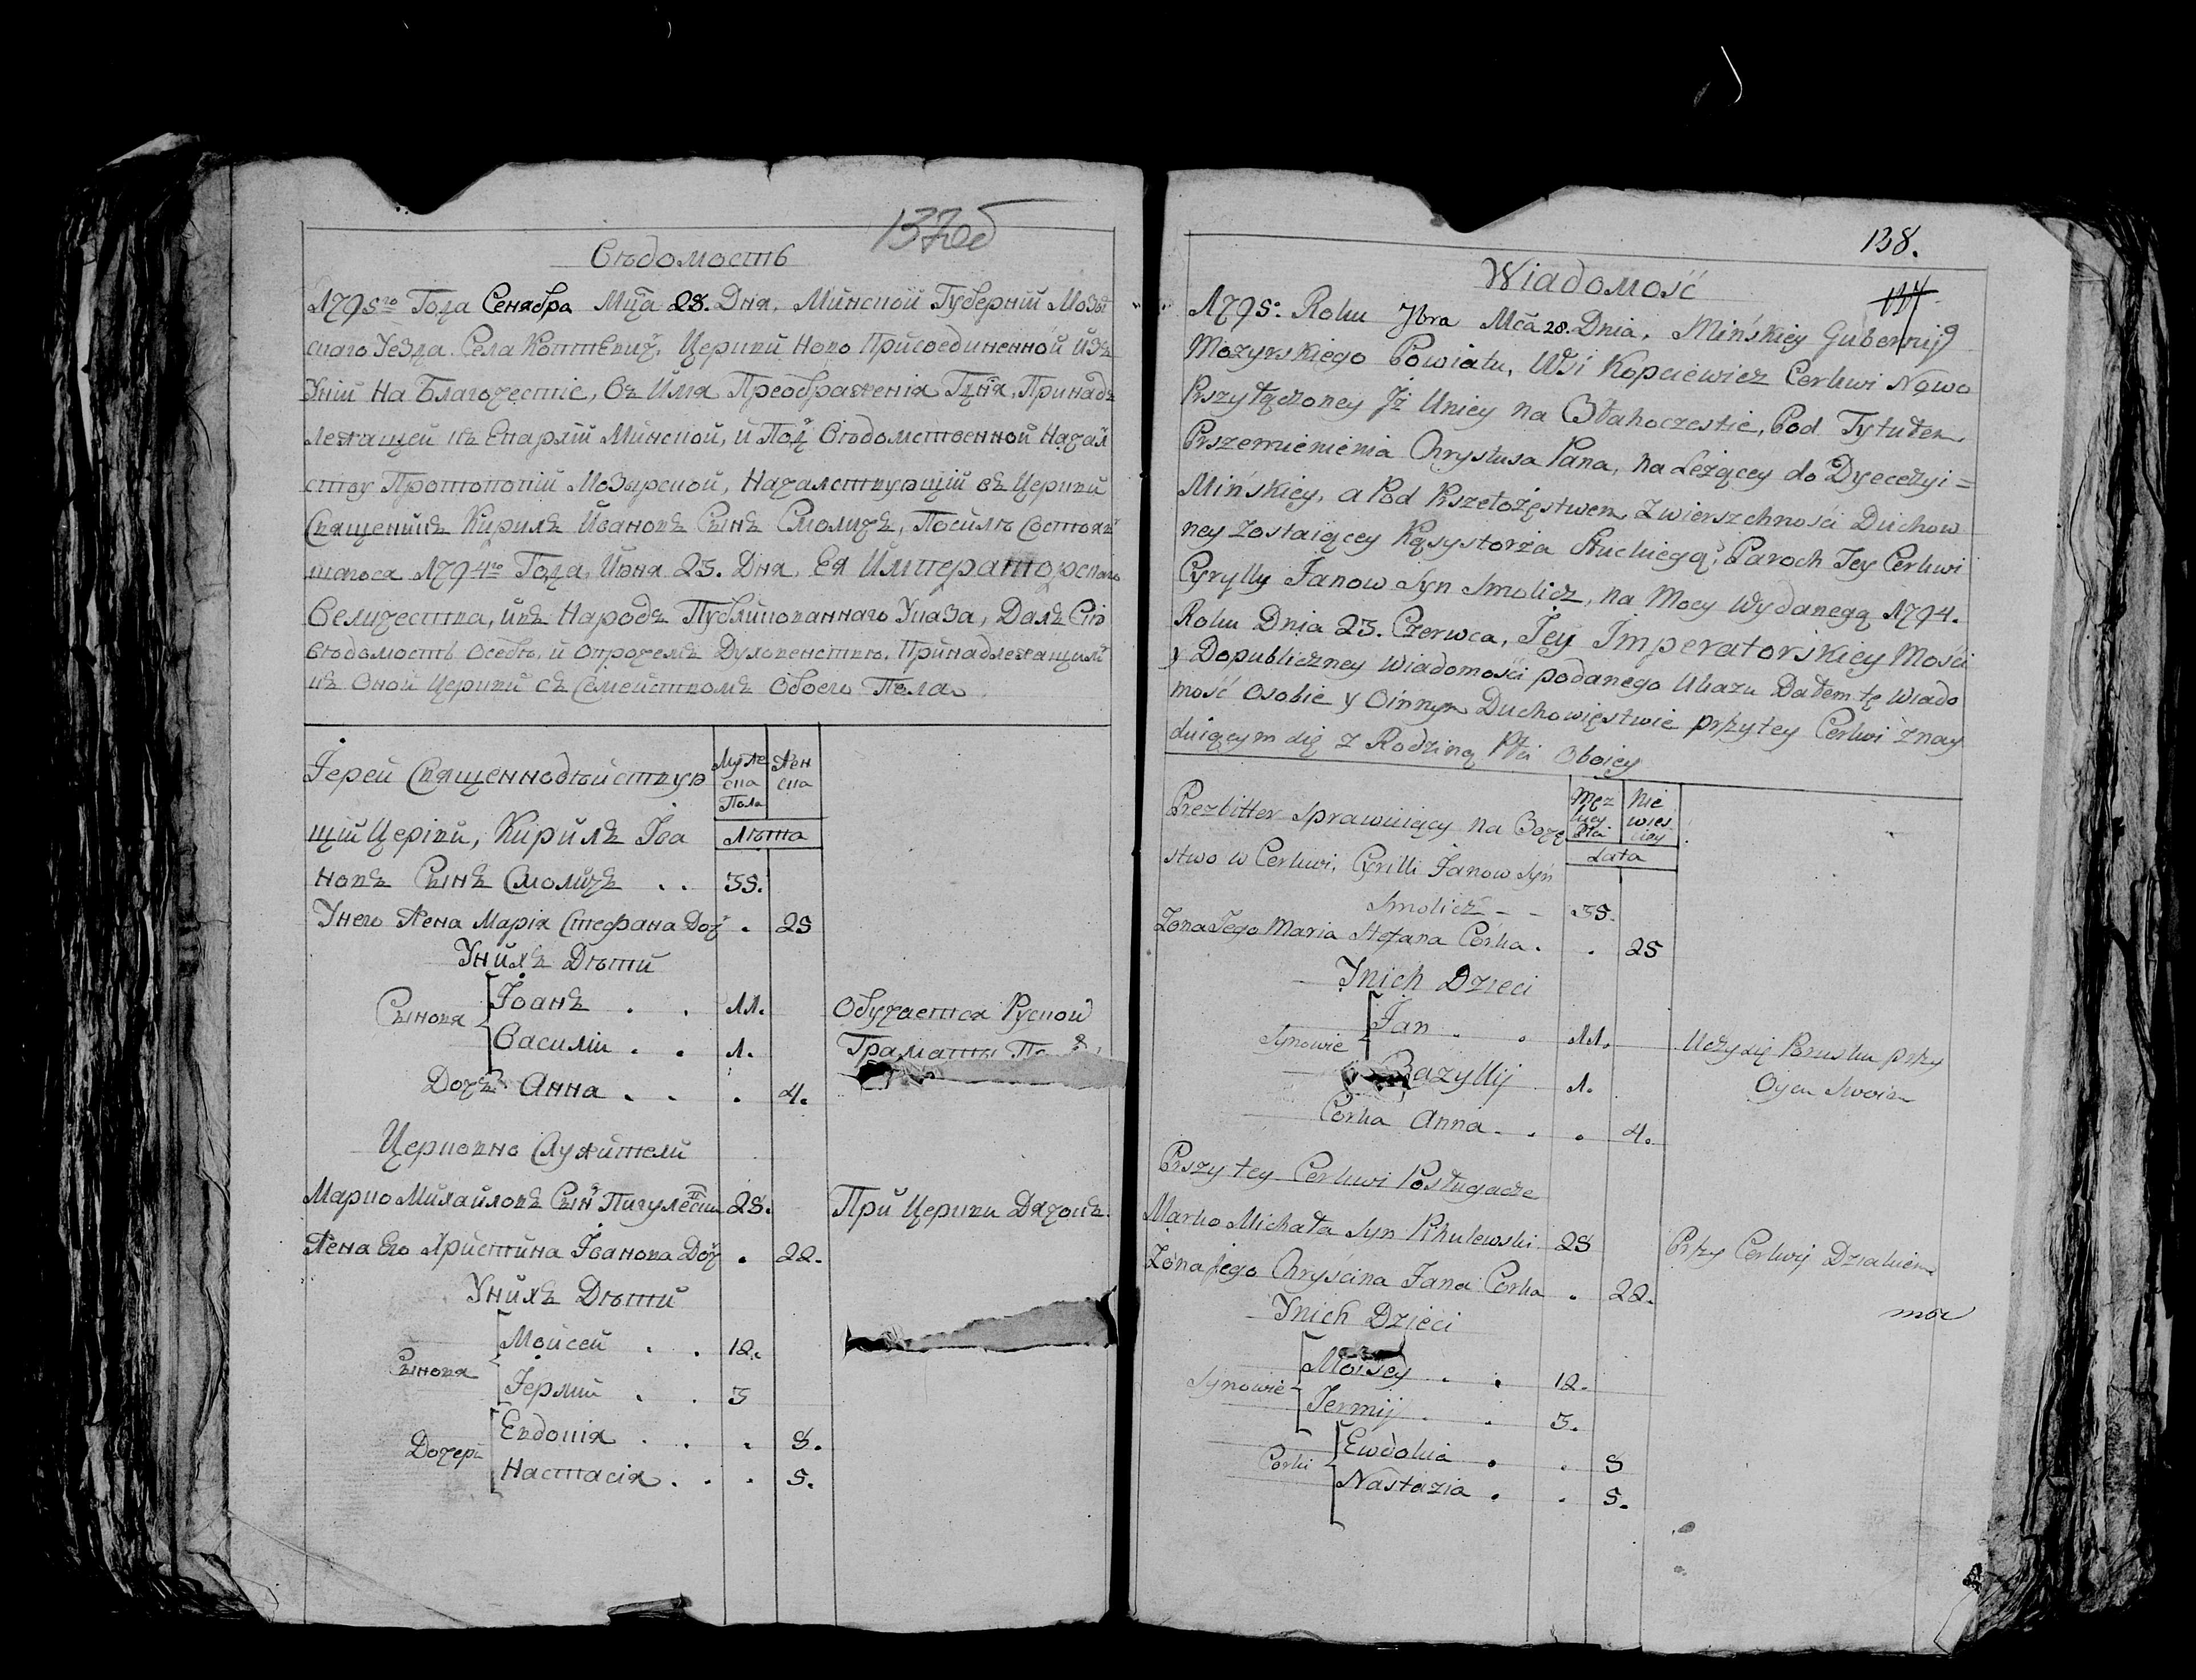 137об
Вѣдомость
1795го Года Сенября Мца 28. Дня, Минской Губерніи Мозыр
скаго Уезда Села Коптевичъ, Церкви Ново Присоединенной Изъ
Уніи На Благочестіе, Въ Имя Преображенія Гдня, Принад
лежащей къ Епархіи Минской, и Подъ Вѣдомственной Начал
ству Протопопіи Мозырской, Началствующій въ Церкви
Священникъ Кирилъ Ивановъ Сынъ Смоличъ, Посилѣ Состояв
шагося 1794го Года, Июня 23. Дня, Ея Императорскаго
Величества, и въ Народъ Публикованнаго Указа, Далъ Сію
Вѣдомость Осебѣ, и Опрочемъ Духовенствѣ, Принадлежащимъ
къ Оной Церкви Съ Семействомъ Обоего Пола.
Іерей Священнодѣйствую
Муже
ска
Пола
Жен
ска
щій Церкви, Кирилъ Іва
Лѣта
новъ Сынъ Смоличъ . . 35.
Унего Жена Марія Стефана Доч . 25
Унихъ Дѣти
Сыновя
Іоанъ . . 11. Обучается Руской
Василіи . . 1. Граматы
Дочъ Анна . . . 4.
Церковно Служители
Марко Михайловъ Сынъ Пигулевскій 28. При Церкви Дячокъ.
Жена Его Христина Іванова Доч . 22.
Унихъ Дѣти
Сыновя
Мойсей . . 12.
Іермій . . 3
Дочери
Евдокія . . . 8.
Настасія . . . 5.
138.
Wiadomość
1795: Roku 7bra Mca 28. Dnia, Mińskiey Gubernij
Mozyrskiego Powiatu, Wsi Kopciewicz Cerkwi Nowo
Przyłączoney Jż Uniey na Błahoczestie, Pod Tytułem
Przemienienia Chrystusa Pana, na Leżącey do Dyecezyi =
Mińskiey, a Pod Przełożęstwem Zwierzchności Duchow
ney zostaiącey Kąsystorza Słuckiego, Paroch Jey Cerkwi
Cyrylly Janow Syn Smolicz, na Mocy Wydanego 1794.
Roku Dnia 23. Czerwca, Jey Jmperatorskiey Mości
y Dopubliczney Wiadomości podanego Ukazu Dałem tę Wiado
mość Osobie y Oinnym Duchowięstwie przy tey Cerkwi znay
duiącym się z Rodziną Płci Oboiey
Prezbitter Sprawuiący na Boże
Męz
kiey
Płci
Nie
wies
ciey
Lata
stwo w Cerkwi, Cyrilli Janow Syn
Smolicz - - 35.
Zona Jego Maria Stefana Corka . . 25
Jnich Dzieci
Synowie
Jan . . 11. Uczy się Porusku przy
Bazyllij 1. Oycu Swoim
Corka Anna . . . 4.
Przy tey Cerkwi Posługacze
Marko Michała Syn Pihulewski 28 Przy Cerkwij Dziakiem
Zona Jego Chryścina Jana Corka . 22.
Jnich Dzieci
Synowie
Moisey . . 12.
Jermij . . 3.
Corki
Ewdokia . . 8
Nastazia . . 5.